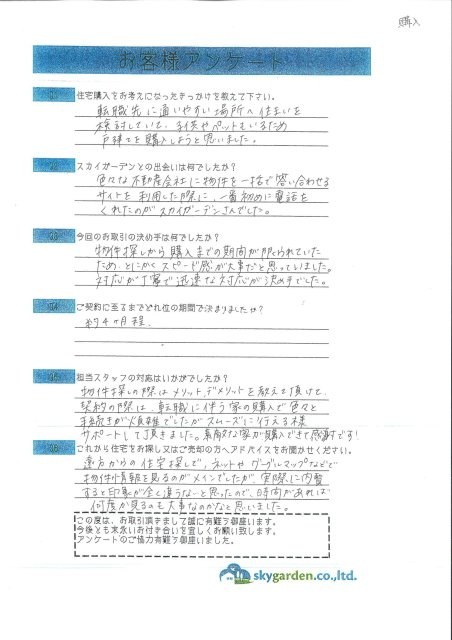 購入
お客様アンケート
Q1
住宅購入をお考えになったきっかけを教えて下さい。
転職先に通いやすい場所へ住まいを
検討していて、子供やペットもいるため
戸建てを購入しようと思いました。
Q2
スカイガーデンとの出会いは何でしたか？
色々な不動産会社に物件を一括で問い合わせる
サイトを利用した際に、一番初めに電話を
くれたのがスカイガーデンさんでした。
Q3
今回のお取引の決め手は何でしたか？
物件探しから購入までの期間が限られていた
ため、とにかくスピード感が大事だと思っていました。
対応が丁寧で迅速な対応が決め手でした。
Q4
ご契約に至るまでどれ位の期間で決まりましたか？
約4ヶ月程.
Q5
担当スタッフの対応はいかがでしたか？
物件探しの際はメリット、デメリットを教えて頂けて、
契約の際は、転職に伴う家の購入で色々と
手続きが煩雑でしたがスムーズに行える様
サポートして頂きました。素敵な家が購入できて感謝です!
Q6
これから住宅をお探し又はご売却の方へアドバイスをお聞かせください。
遠方からの住宅探しで、ネットやグーグルマップなどで
物件情報を見るのがメインでしたが、実際に内覧
すると印象が全く違うなーと思ったので、時間があれば
何度か見るのも大事なのかなと思いました。
この度は、お取引頂きまして誠に有難う御座います。
今後とも末永いお付き合いを宜しくお願い致します。
アンケートのご協力有難う御座いました。
skygarden.co.,ltd.